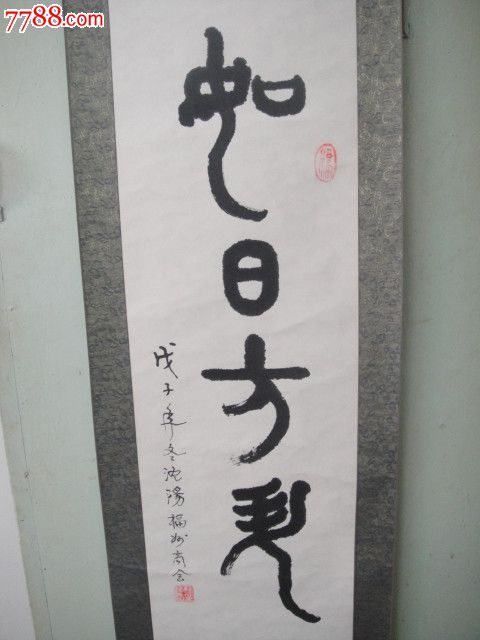 7788.com
如日方升
戊子年冬沈陽福州商会